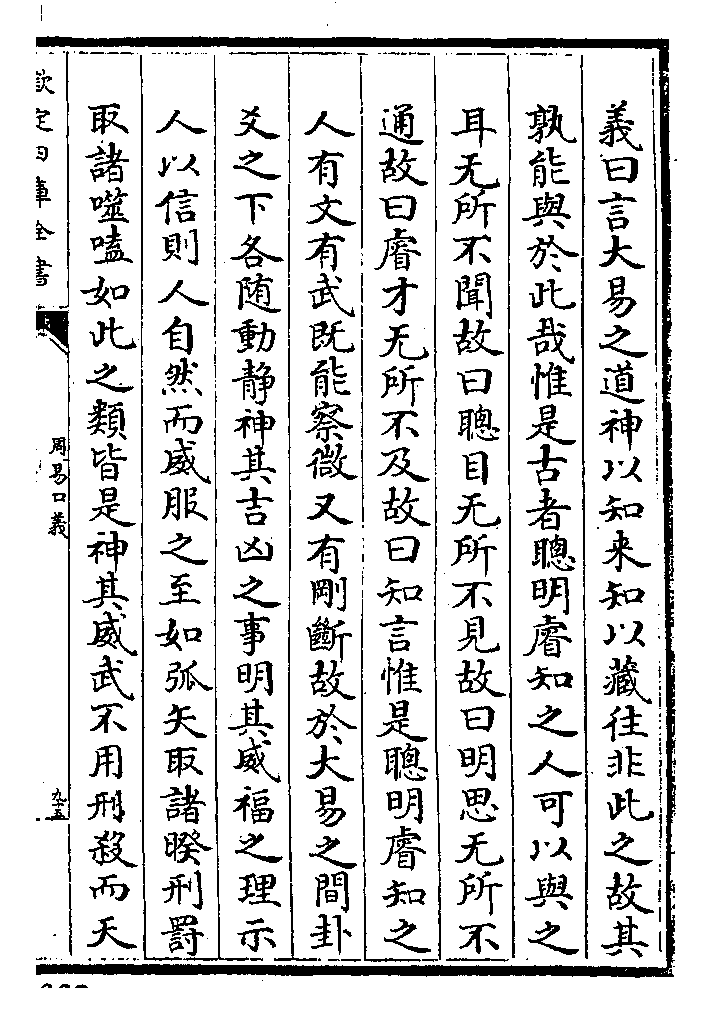 義曰言大易之道神以知来知以藏往非此之故其
孰能與於此哉惟是古者聰明睿知之人可以與之
耳无所不聞故曰聰目无所不見故曰明思无所不
通故曰睿才无所不及故曰知言惟是聰明睿知之
人有文有武既能察微又有剛斷故於大易之間卦
爻之下各随動静神其吉凶之事明其威福之理示
人以信則人自然而威服之至如弧矢取諸睽刑罰
取諸噬嗑如此之類皆是神其威武不用刑殺而天
欽定四庫全書
周易口義
九五